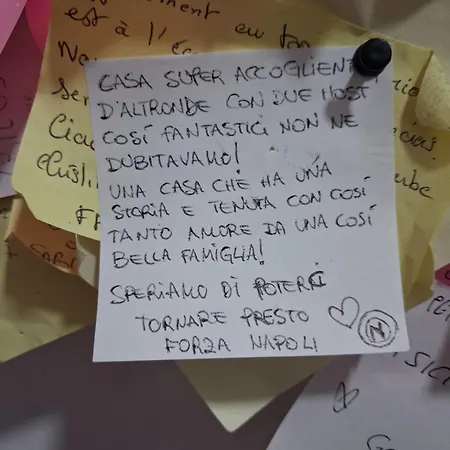 est à l'é
CASA SUPER ACCOGLIENTE
D'ALTRONDE CON DUE HOST
COSÍ FANTASTICI NON NE
DUBITAVAMO!
UNA CASA CHE HA UNA
STORIA E TENUTA CON COSÍ
TANTO AMORE DA UNA COSÍ
BELLA FAMIGLIA!
SPERIAMO DI POTERCI
TORNARE PRESTO
FORZA NAPOLI
N